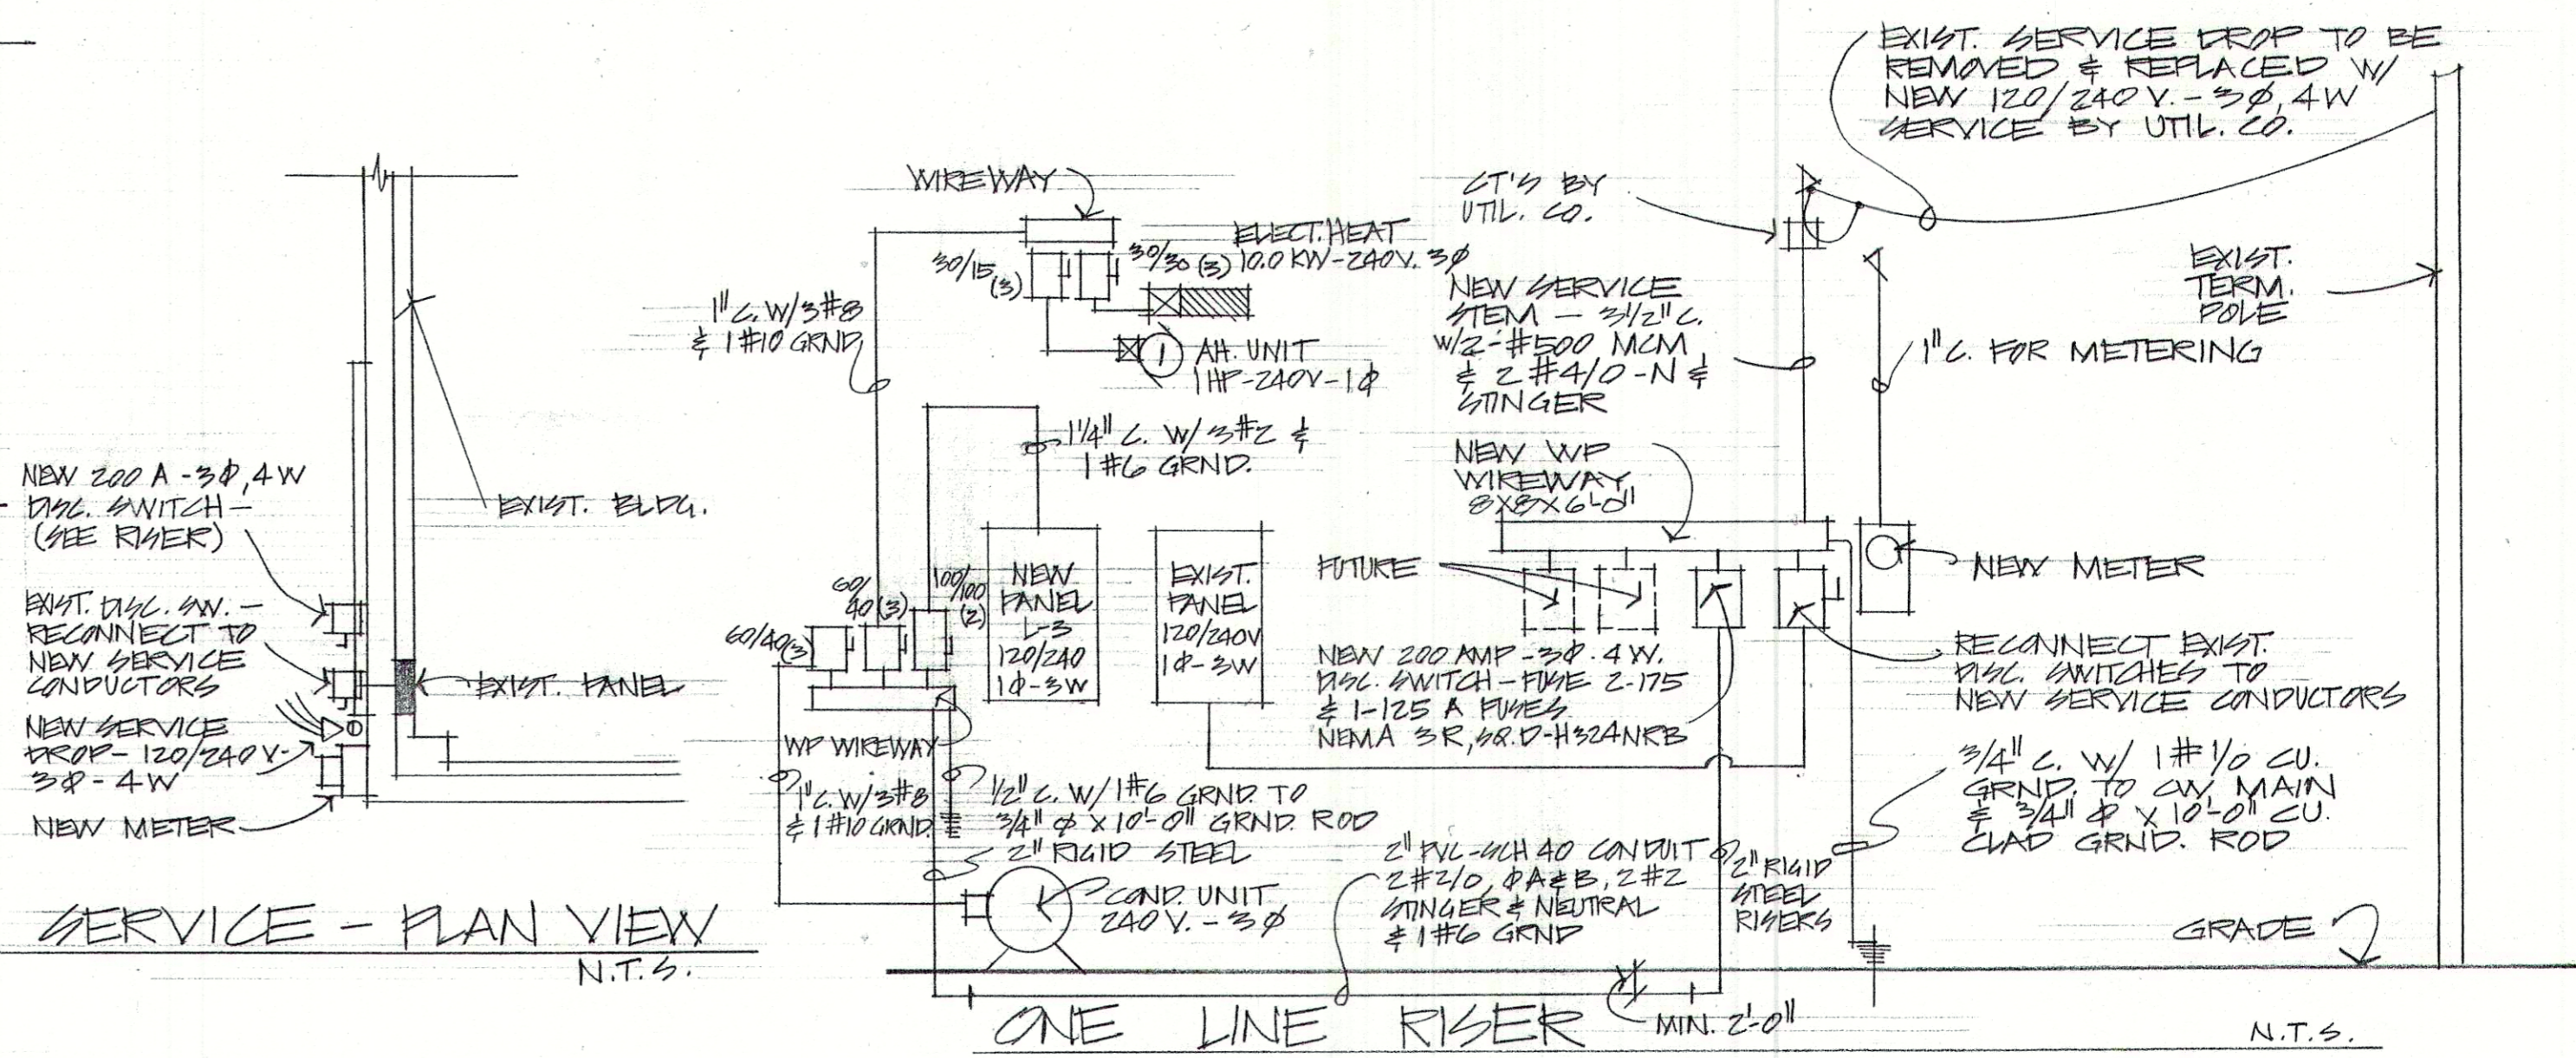 EXIST. SERVICE DROP TO BE
REMOVED & REPLACED W/
NEW 120/240 V. - 3Ø, 4W
SERVICE BY UTIL. CO.
WIREWAY
CT'S BY
UTIL. CO.
ELECT. HEAT
10.0 KW-240V. 3Ø
30/15
(3)
30/30 (3)
1" C. W/ 3#8
& 1 #10 GRND.
AH. UNIT
1 HP-240V-1Ø
1
NEW SERVICE
STEM - 3 1/2" C.
W/2-#500 MCM
& 2 #4/0-N &
STINGER
EXIST.
TERM.
POLE
1" C. FOR METERING
1 1/4" C. W/ 3#2 &
1 #6 GRND.
NEW WP
WIREWAY
8X8X6'-0"
NEW 200 A -3Ø, 4W
DISC. SWITCH -
(SEE RISER)
EXIST. BLDG.
EXIST. DISC. SW. -
RECONNECT TO
NEW SERVICE
CONDUCTORS
EXIST. PANEL
NEW SERVICE
DROP - 120/240 V-
3Ø - 4W
NEW METER
60/40(3)
60/
40(3)
100/100
(2)
NEW
PANEL
L-3
120/240
1Ø-3W
EXIST.
PANEL
120/240V
1Ø-3W
FUTURE
NEW METER
NEW 200 AMP -3Ø. 4W.
DISC. SWITCH - FUSE 2-175
& 1-125 A FUSES
NEMA 3R, SQ.D-H324NRB
RECONNECT EXIST.
DISC. SWITCHES TO
NEW SERVICE CONDUCTORS
WP WIREWAY
1" C. W/ 3#8
& 1 #10 GRND.
1/2" C. W/ 1#6 GRND. TO
3/4" Ø X 10'-0" GRND. ROD
2" RIGID STEEL
COND. UNIT
240 V. - 3Ø
2" PVC-SCH 40 CONDUIT
2#2/0, ØA&B, 2#2
STINGER & NEUTRAL
& 1#6 GRND
2" RIGID
STEEL
RISERS
3/4" C. W/ 1# 1/0 CU.
GRND. TO CW MAIN
& 3/4" Ø X 10'-0" CU.
CLAD GRND. ROD
GRADE
SERVICE - PLAN VIEW
N.T.S.
ONE LINE RISER
MIN. 2'-0"
N.T.S.